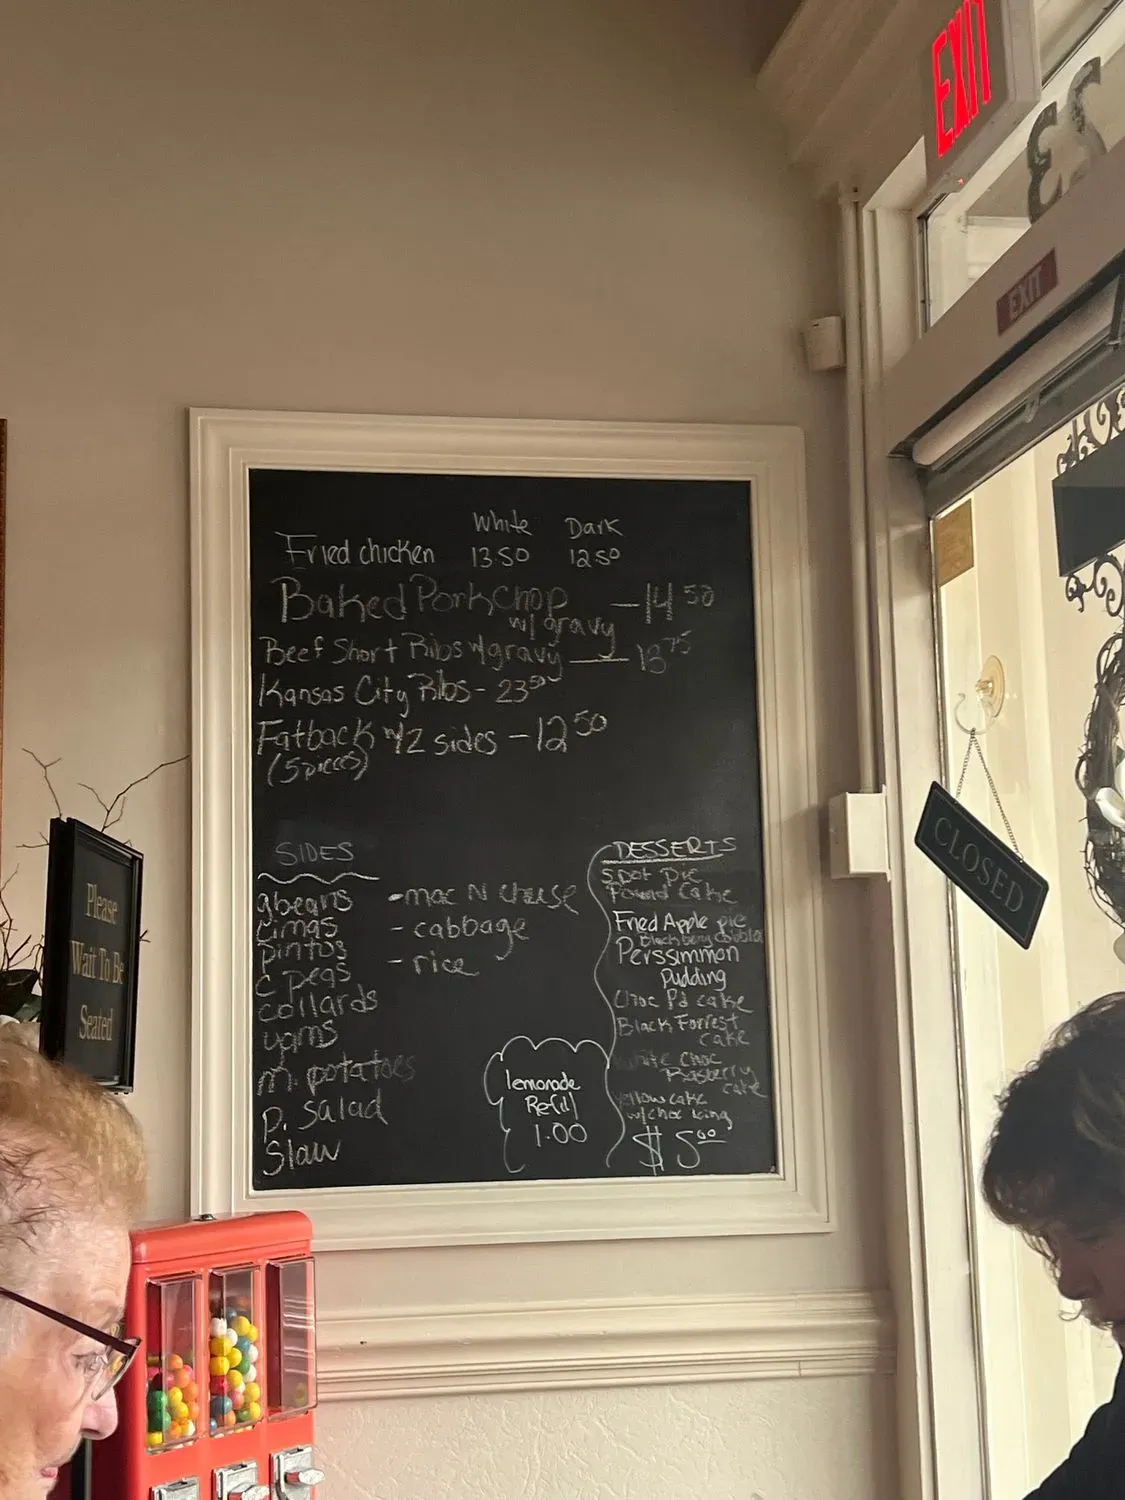 EXIT
23
EXIT
White Dark
Fried chicken 13.50 12.50
Baked Pork Chop —14 50
w/ gravy
Beef Short Ribs w/gravy — 13 75
Kansas City Ribs - 23 50
Fatback w/2 sides - 12 50
(5 pieces)
SIDES
gbeans
Limas
pintos
c peas
collards
yams
m. potatoes
p. salad
Slaw
- mac N cheese
- cabbage
- rice
lemonade
Refill
1.00
DESSERTS
spot pie
Pound Cake
Fried Apple pie
Blackberry Cobbla
Perssimmon
Pudding
Choc Pd cake
Black Forrest
cake
white choc
Rasberry
cake
yellow cake
w/choc icing
$ 5 00
CLOSED
Please
Wait To Be
Seated